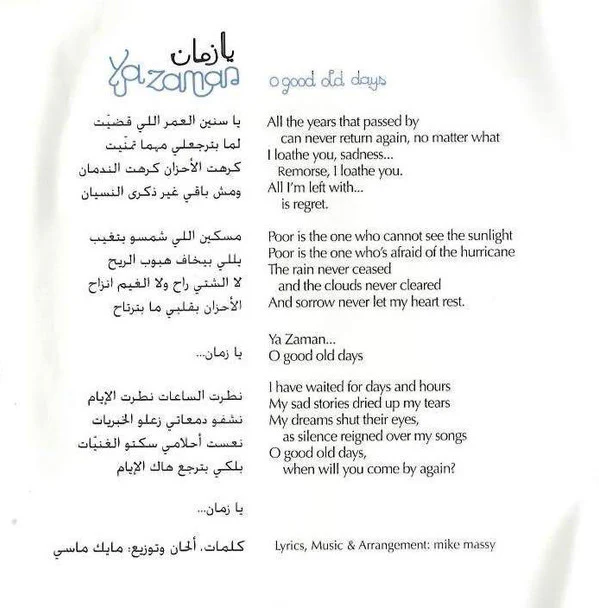 يا زمان
Ya zaman
o good old days
يا سنين العمر اللي قضيّت
لما بترجعلي مهما تمنّيت
كرهت الأحزان كرهت الندمان
ومش باقي غير ذكرى النسيان
مسكين اللي شمسو بتغيب
يللي بيخاف هبوب الريح
لا الشتي راح ولا الغيم انزاح
الأحزان بقلبي ما بترتاح
يا زمان...
نطرت الساعات نطرت الإيام
نشفو دمعاتي زعلو الخبريات
نعست أحلامي سكتو الغنيّات
بلكي بترجع هاك الإيام
يا زمان...
كلمات، ألحان وتوزيع: مايك ماسي
All the years that passed by
can never return again, no matter what
I loathe you, sadness...
Remorse, I loathe you.
All I'm left with...
is regret.
Poor is the one who cannot see the sunlight
Poor is the one who's afraid of the hurricane
The rain never ceased
and the clouds never cleared
And sorrow never let my heart rest.
Ya Zaman...
O good old days
I have waited for days and hours
My sad stories dried up my tears
My dreams shut their eyes,
as silence reigned over my songs
O good old days,
when will you come by again?
Lyrics, Music & Arrangement: mike massy